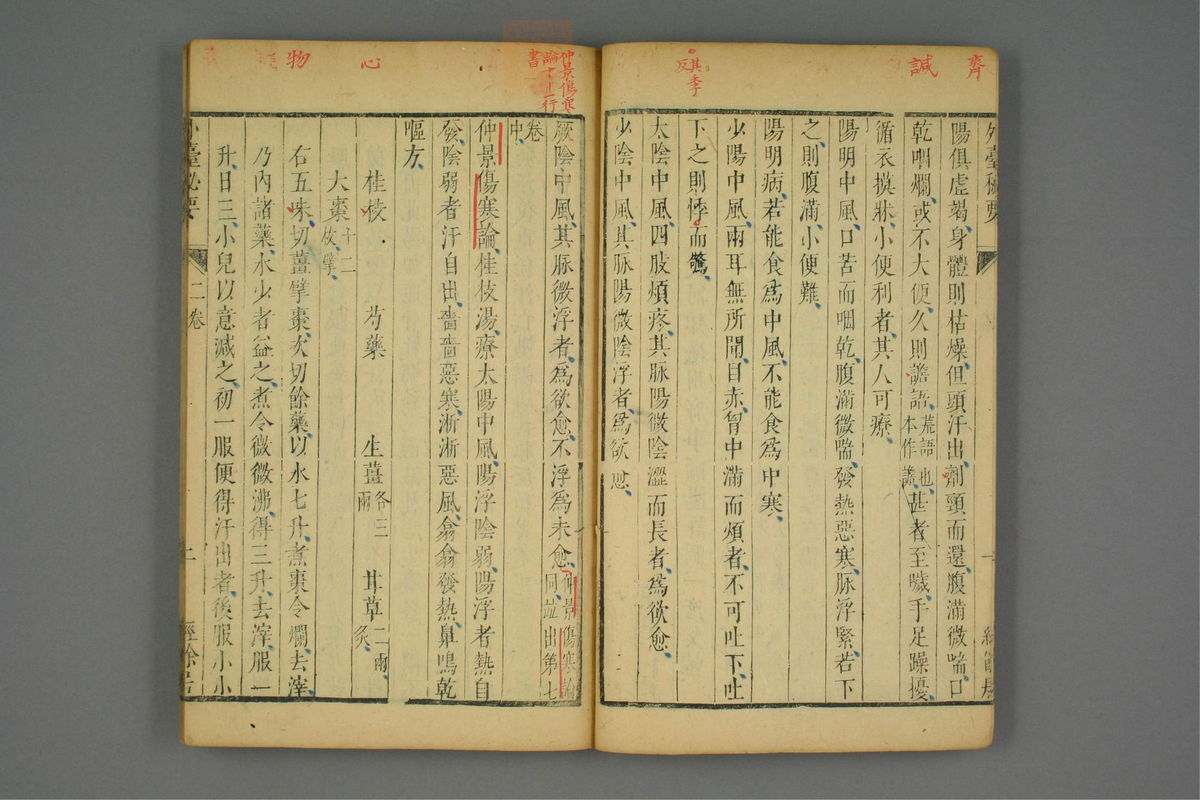 齊
誠
其季
反
外臺秘要
陽俱虛竭身體則枯燥但頭汗出劑頸而還腹滿微喘口
乾咽爛或不大便久則譫語荒語也本作讝甚者至噦手足躁擾
循衣摸牀小便利者其人可療
陽明中風口苦而咽乾腹滿微喘發熱惡寒脉浮緊若下
之則腹滿小便難
陽明病若能食爲中風不能食爲中寒
少陽中風兩耳無所聞目赤胷中滿而煩者不可吐下吐
下之則悸而驚
太陰中風四肢煩疼其脉陽微陰澀而長者爲欲愈
少陰中風其脉陽微陰浮者爲欲愈
仲景傷寒
論十二行
書
心
物
厥陰中風其脉微浮者爲欲愈不浮爲未愈仲景傷寒論同並出第七
卷中
仲景傷寒論桂枝湯療太陽中風陽浮陰弱陽浮者熱自
發陰弱者汗自出嗇嗇惡寒淅淅惡風翕翕發熱鼻鳴乾
嘔方
桂枝 芍藥 生薑各三兩 甘草二兩炙
大棗十二枚擘
右五味切薑擘棗次切餘藥以水七升煮棗令爛去滓
乃內諸藥水少者益之煮令微微沸得三升去滓服一
升日三小兒以意減之初一服便得汗出者後服小小
外臺秘要
二卷
二
經餘居